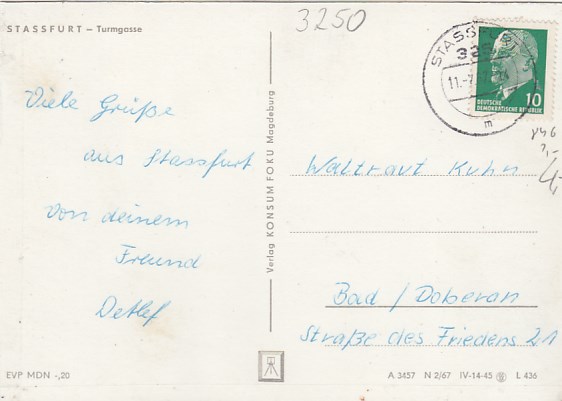 STASSFURT – Turmgasse
3250
STASSFURT
325
11.-7.
10
DEUTSCHE
DEMOKRATISCHE REPUBLIK
m
Viele Grüße
aus Stassfurt
von deinem
Freund
Detlef
Verlag KONSUM FOKU Magdeburg
846
4,-
Waltraut Kuhn
Bad / Doberan
Straße des Friedens 21
EVP MDN -,20
A 3457 N 2/67 IV-14-45 L 436